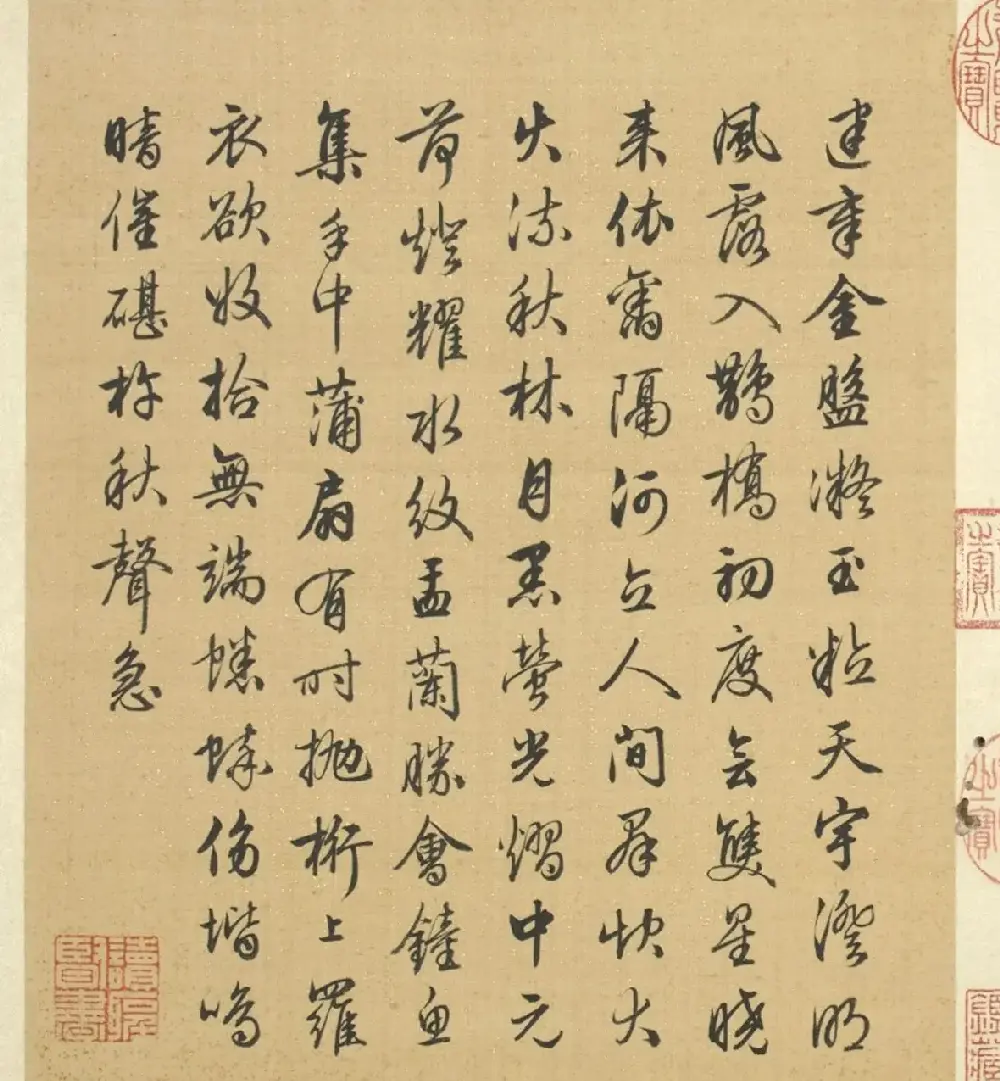 建章金盤凝玉粒天宇澄明
風露入鵲橋初度会雙星曉
来依舊隔河立人間群快大
火流秋林月黑螢光熠中元
荷燈耀水紋盂蘭勝會鐘魚
集手中蒲扇有时抛桁上羅
衣欲收拾無端蟋蟀傍堦鳴
暗催碪杵秋聲急